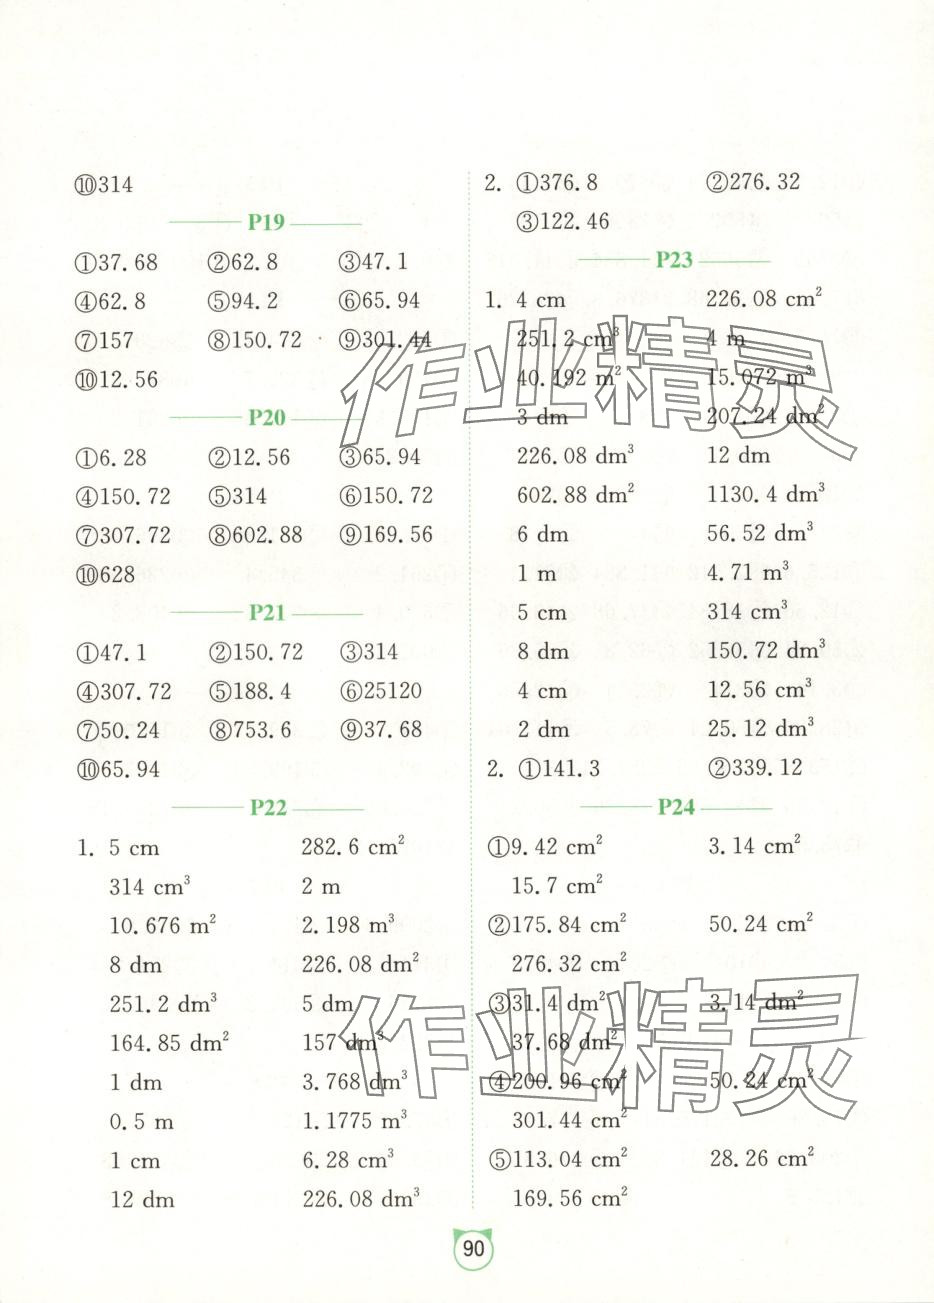 ⑩314
P19
①37.68 ②62.8 ③47.1
④62.8 ⑤94.2 ⑥65.94
⑦157 ⑧150.72 ⑨301.44
⑩12.56
P20
①6.28 ②12.56 ③65.94
④150.72 ⑤314 ⑥150.72
⑦307.72 ⑧602.88 ⑨169.56
⑩628
P21
①47.1 ②150.72 ③314
④307.72 ⑤188.4 ⑥25120
⑦50.24 ⑧753.6 ⑨37.68
⑩65.94
P22
1. 5 cm 282.6 cm²
314 cm³ 2 m
10.676 m² 2.198 m³
8 dm 226.08 dm²
251.2 dm³ 5 dm
164.85 dm² 157 dm³
1 dm 3.768 dm³
0.5 m 1.1775 m³
1 cm 6.28 cm³
12 dm 226.08 dm³
2. ①376.8 ②276.32
③122.46
P23
1. 4 cm 226.08 cm²
251.2 cm³ 4 m
40.192 m² 15.072 m³
3 dm 207.24 dm²
226.08 dm³ 12 dm
602.88 dm² 1130.4 dm³
6 dm 56.52 dm³
1 m 4.71 m³
5 cm 314 cm³
8 dm 150.72 dm³
4 cm 12.56 cm³
2 dm 25.12 dm³
2. ①141.3 ②339.12
P24
①9.42 cm² 3.14 cm²
15.7 cm²
②175.84 cm² 50.24 cm²
276.32 cm²
③31.4 dm² 3.14 dm²
37.68 dm²
④200.96 cm² 50.24 cm²
301.44 cm²
⑤113.04 cm² 28.26 cm²
169.56 cm²
90
作业精灵
作业精灵